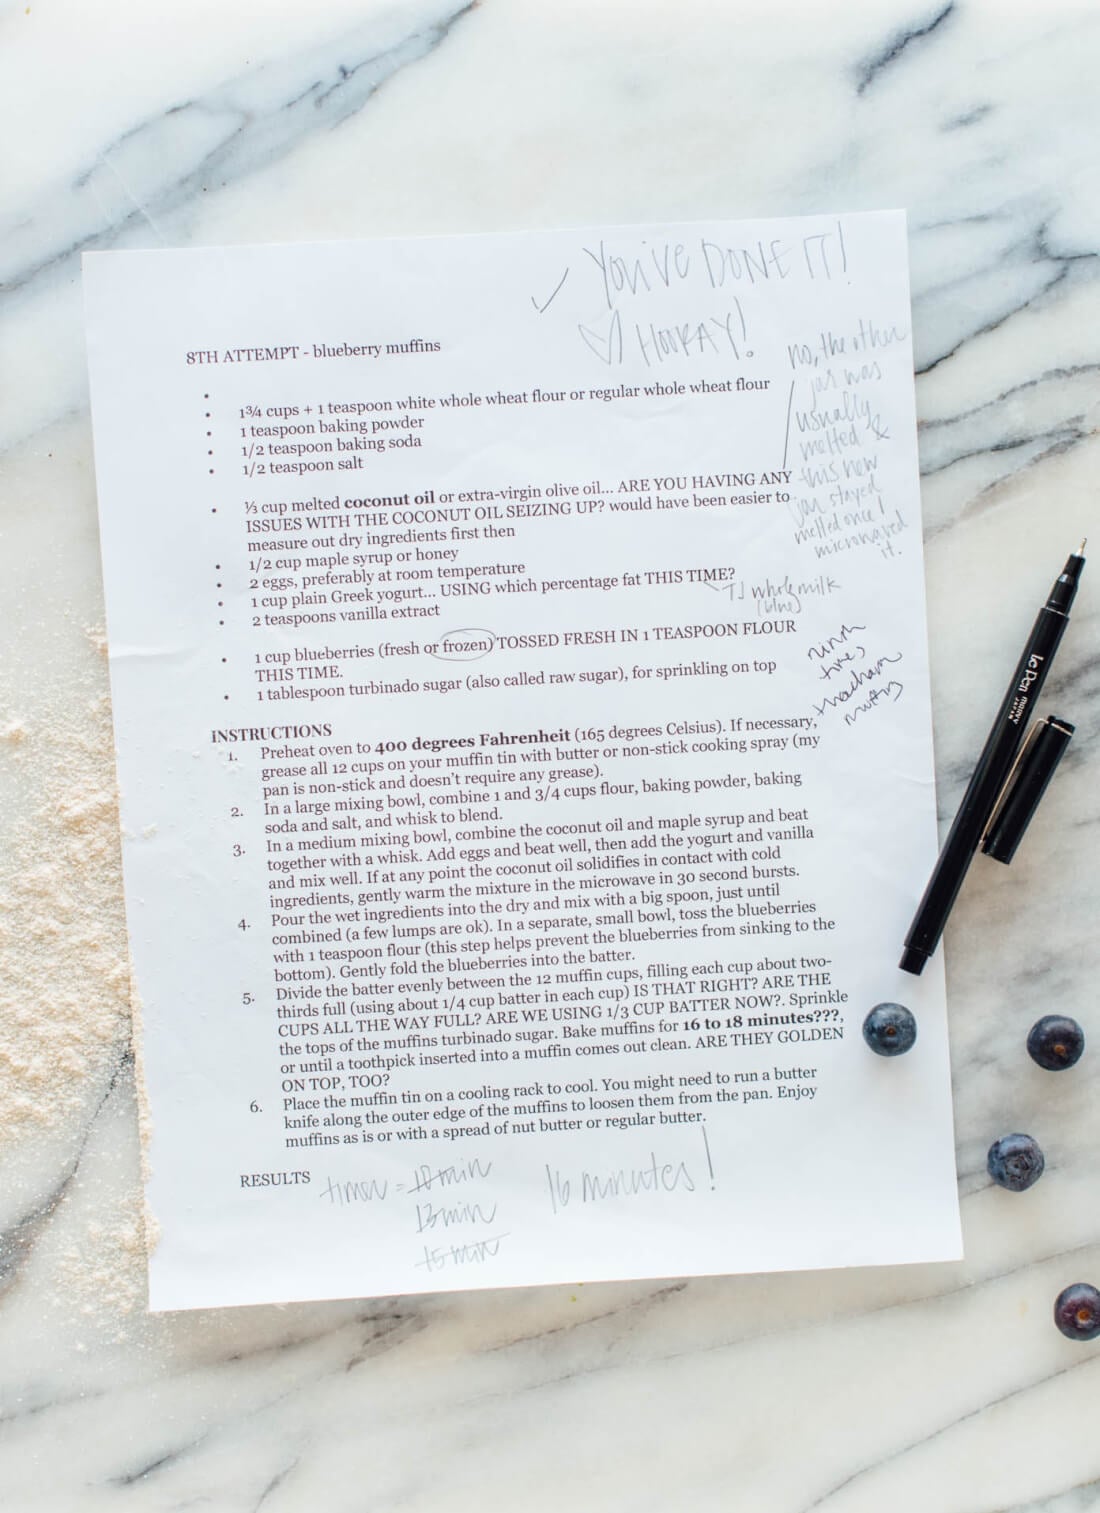 ✓ YOU'VE DONE IT!
♡ HOORAY!
8TH ATTEMPT - blueberry muffins
no, the other
jar was
usually
melted &
this new
jar stayed
melted once I
microwaved
it.
• 1¾ cups + 1 teaspoon white whole wheat flour or regular whole wheat flour
• 1 teaspoon baking powder
• 1/2 teaspoon baking soda
• 1/2 teaspoon salt
• ⅓ cup melted coconut oil or extra-virgin olive oil... ARE YOU HAVING ANY
ISSUES WITH THE COCONUT OIL SEIZING UP? would have been easier to
measure out dry ingredients first then
• 1/2 cup maple syrup or honey
• 2 eggs, preferably at room temperature
• 1 cup plain Greek yogurt... USING which percentage fat THIS TIME?
TJ whole milk
(blue)
• 2 teaspoons vanilla extract
• 1 cup blueberries (fresh or frozen) TOSSED FRESH IN 1 TEASPOON FLOUR
THIS TIME.
• 1 tablespoon turbinado sugar (also called raw sugar), for sprinkling on top
muffins
INSTRUCTIONS
1. Preheat oven to 400 degrees Fahrenheit (165 degrees Celsius). If necessary,
grease all 12 cups on your muffin tin with butter or non-stick cooking spray (my
pan is non-stick and doesn't require any grease).
2. In a large mixing bowl, combine 1 and 3/4 cups flour, baking powder, baking
soda and salt, and whisk to blend.
3. In a medium mixing bowl, combine the coconut oil and maple syrup and beat
together with a whisk. Add eggs and beat well, then add the yogurt and vanilla
and mix well. If at any point the coconut oil solidifies in contact with cold
ingredients, gently warm the mixture in the microwave in 30 second bursts.
4. Pour the wet ingredients into the dry and mix with a big spoon, just until
combined (a few lumps are ok). In a separate, small bowl, toss the blueberries
with 1 teaspoon flour (this step helps prevent the blueberries from sinking to the
bottom). Gently fold the blueberries into the batter.
5. Divide the batter evenly between the 12 muffin cups, filling each cup about two-
thirds full (using about 1/4 cup batter in each cup) IS THAT RIGHT? ARE THE
CUPS ALL THE WAY FULL? ARE WE USING 1/3 CUP BATTER NOW?. Sprinkle
the tops of the muffins turbinado sugar. Bake muffins for 16 to 18 minutes???,
or until a toothpick inserted into a muffin comes out clean. ARE THEY GOLDEN
ON TOP, TOO?
6. Place the muffin tin on a cooling rack to cool. You might need to run a butter
knife along the outer edge of the muffins to loosen them from the pan. Enjoy
muffins as is or with a spread of nut butter or regular butter.
RESULTS timer = 10 min
13 min
15 min
16 minutes!
le Pen MARVY
JAPAN